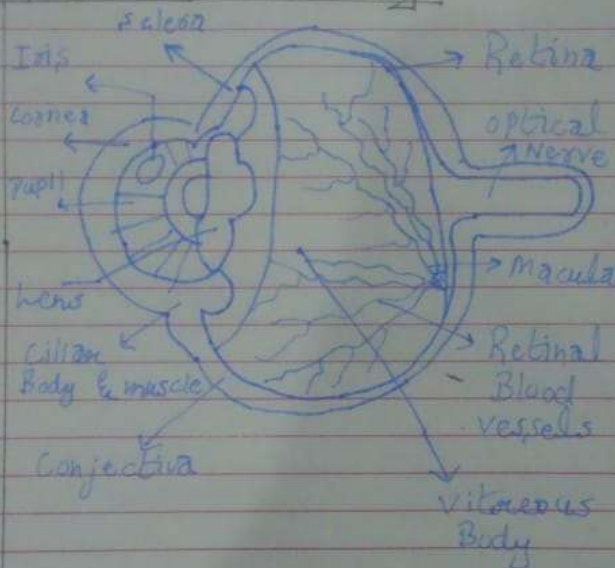 Sclera
Iris
cornea
pupil
Lens
Ciliar
Body & muscle
Conjectiva
Retina
optical
Nerve
Macula
Retinal
Blood
vessels
Vitreous
Body